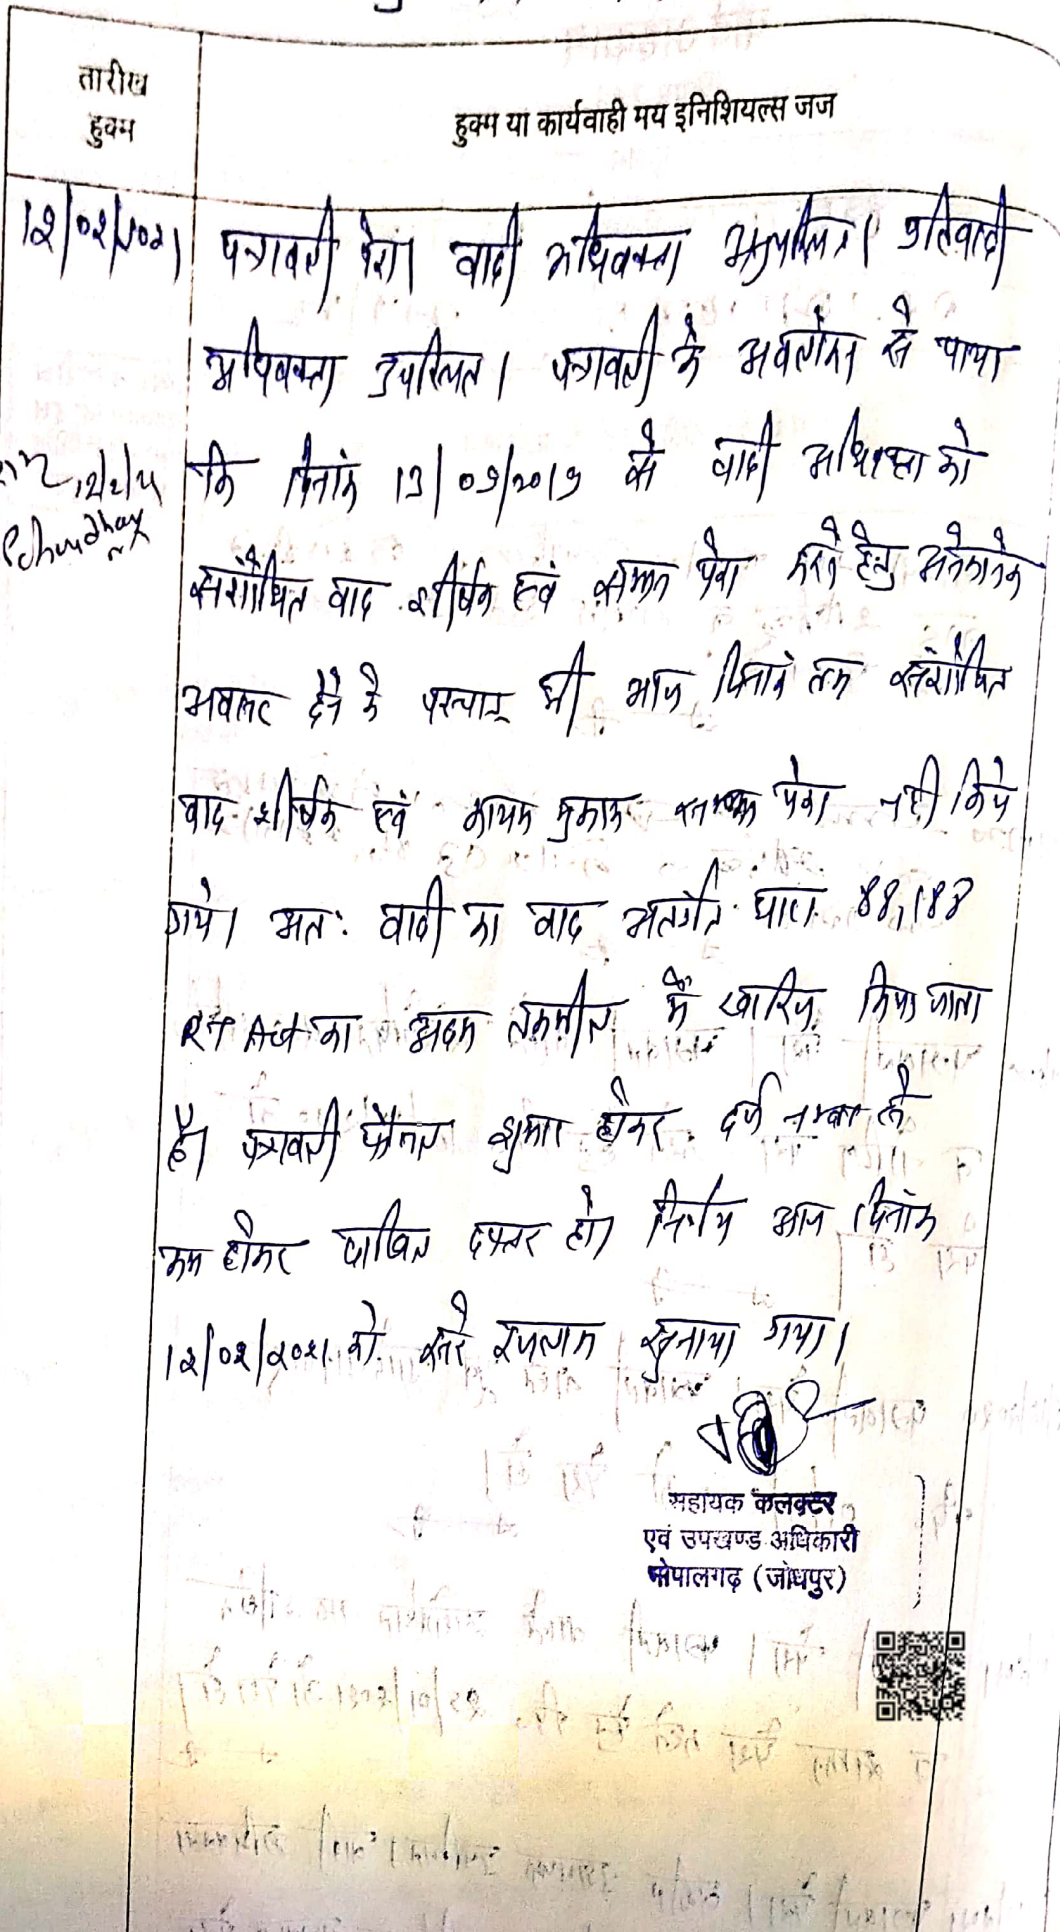 तारीख
हुक्म
हुक्म या कार्यवाही मय इनिशियल्स जज
12/02/2021
पत्रावली पेश। वादी अधिवक्ता अनुपस्थित। प्रतिवादी
अधिवक्ता उपस्थित। पत्रावली के अवलोकन से पाया
कि दिनांक 13/09/2019 से वादी अधिवक्ता को
संशोधित वाद शीर्षक एवं सम्मन पेश करने हेतु अनेकानेक
अवसर देने के पश्चात् भी आज दिनांक तक संशोधित
वाद शीर्षक एवं कायम मुकाम सम्मन पेश नही किये
गये। अतः वादी का वाद अन्तर्गत धारा 88,188
RT Act का अदम तकमील में खारिज किया जाता
है। पत्रावली फैसल शुमार होकर दर्ज नम्बर से
कम होकर दाखिल दफ्तर हो। निर्णय आज दिनांक
12/02/2021 को सरे इजलास सुनाया गया।
Pchoudhary
सहायक कलक्टर
एवं उपखण्ड अधिकारी
भोपालगढ़ (जोधपुर)